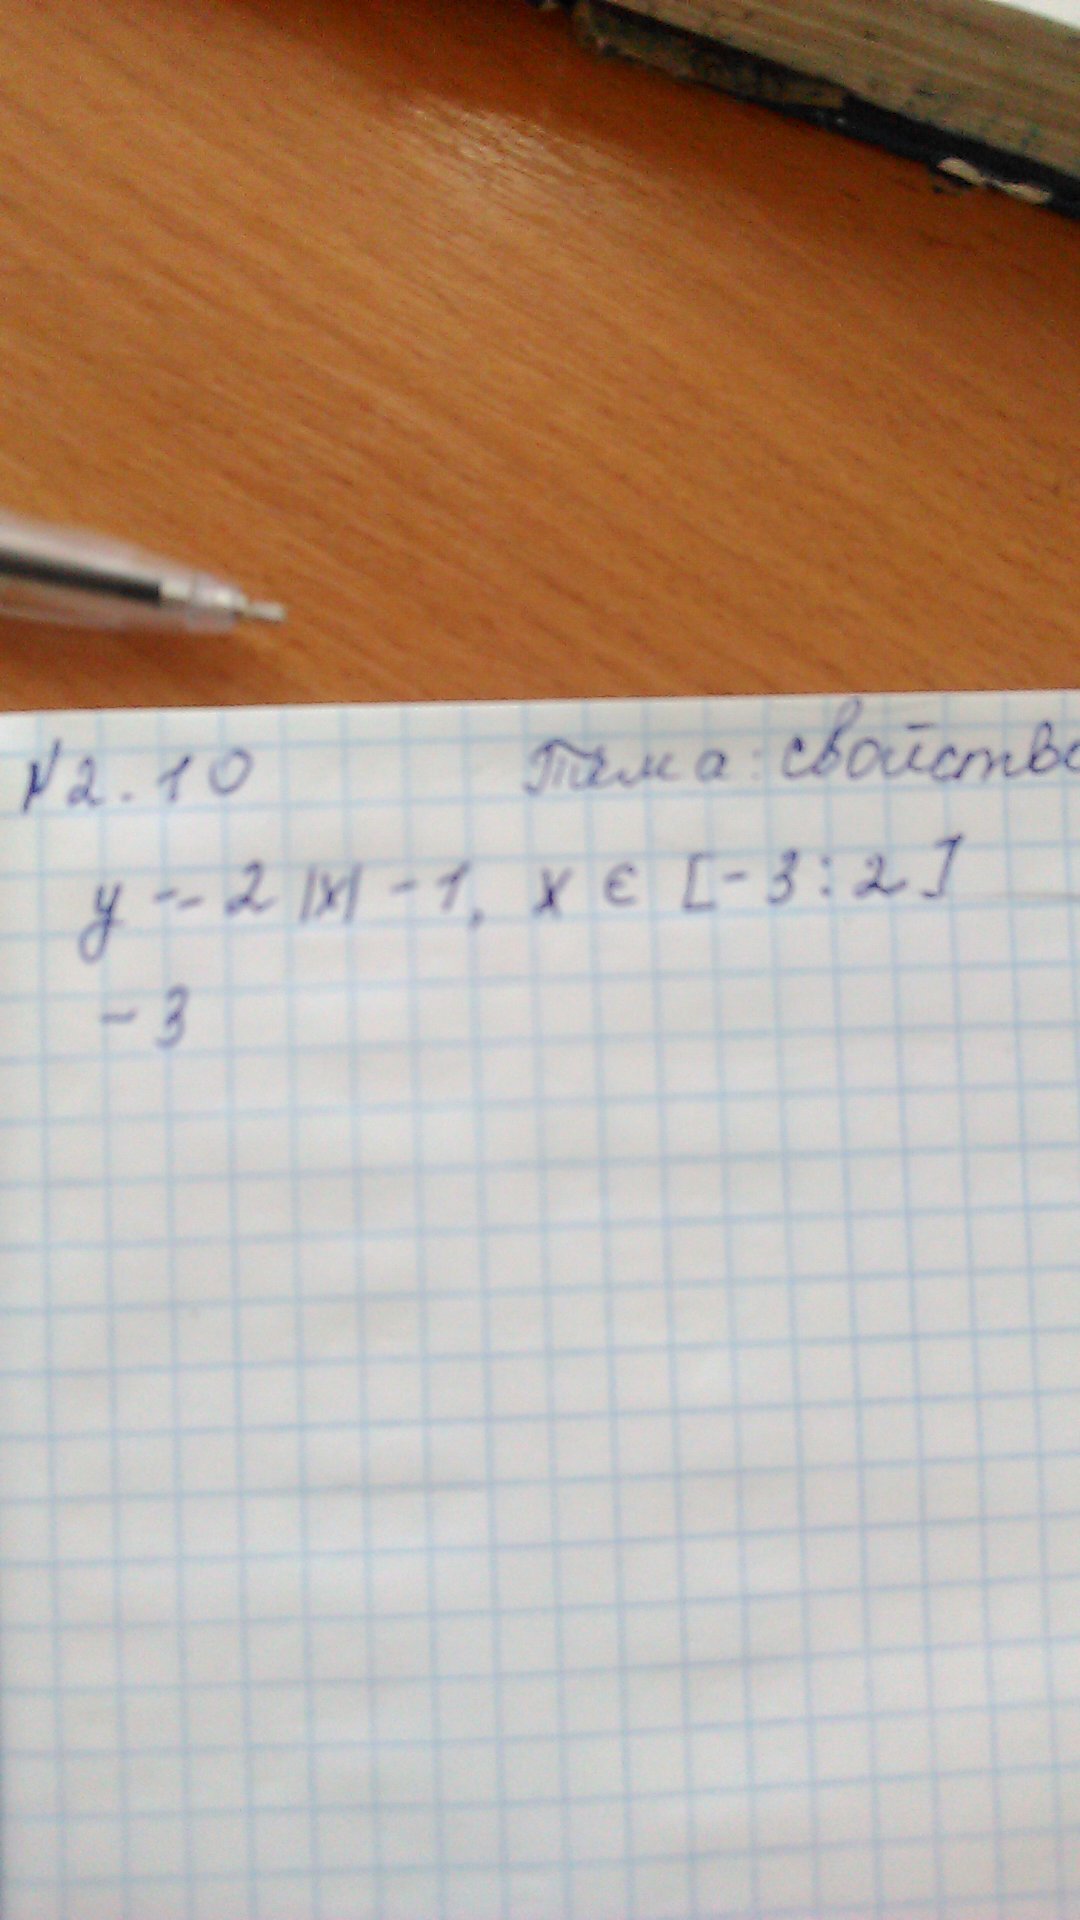 №2.10 Тема: свойства
y -- 2 |x| - 1, x ∈ [-3:2]
-3